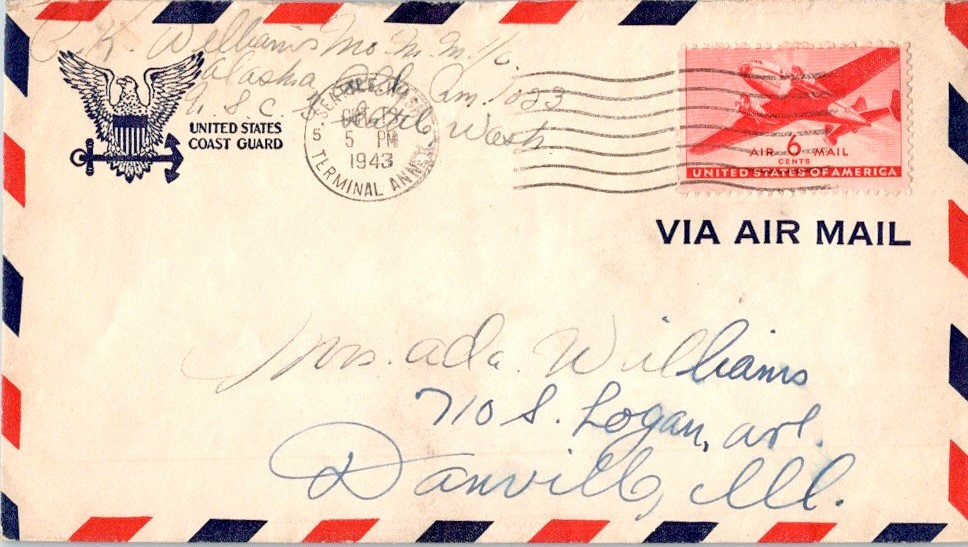 C. K. Williams Mo. M. M. 1/c.
Alaska Bldg Rm. 1023
U. S. C. G. Seattle Wash.
UNITED STATES
COAST GUARD
SEATTLE, WASH.
5 PM
1943
5
TERMINAL ANNEX
AIR 6 MAIL
CENTS
UNITED STATES OF AMERICA
VIA AIR MAIL
Mrs. Ada Williams
710 S. Logan, Ave.
Danville, Ill.